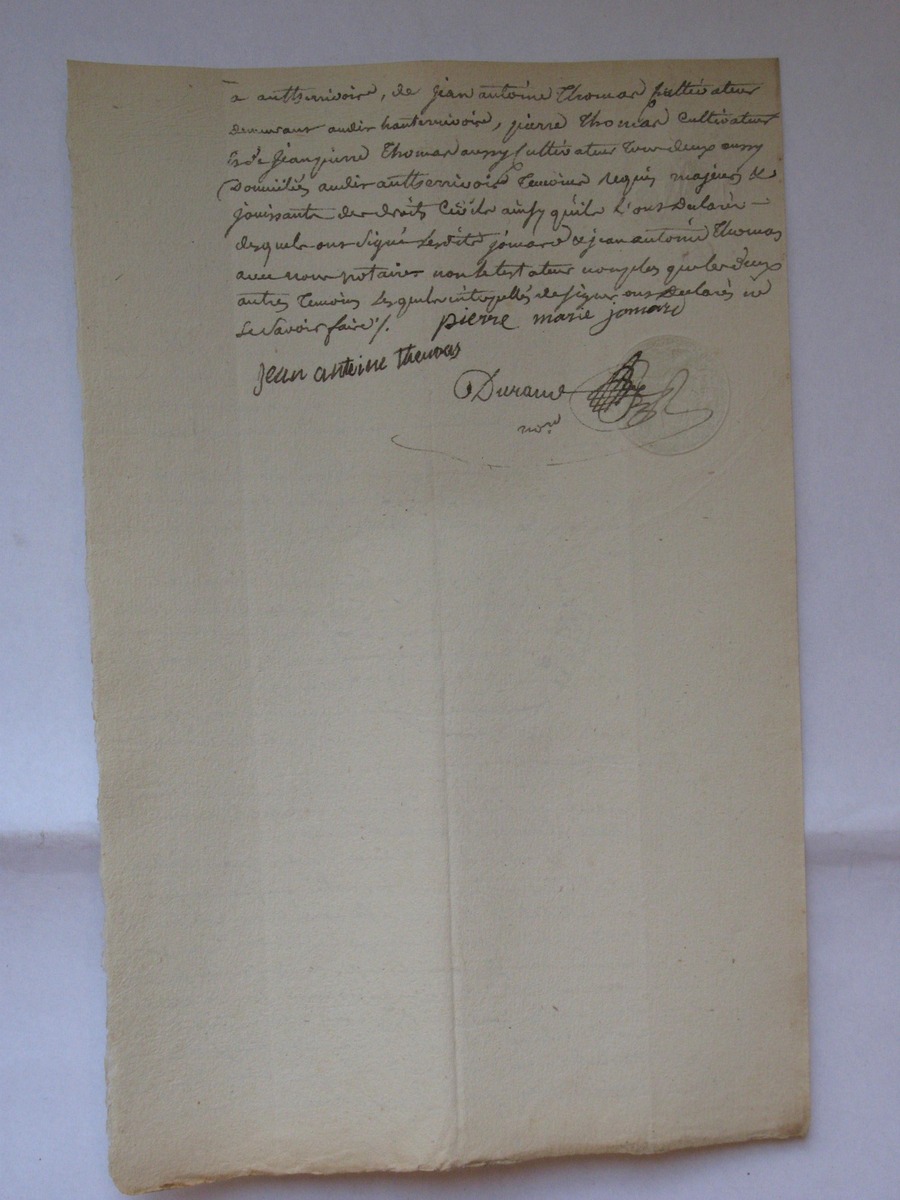 a autherrivoire, de jean antoine Thomas Cultivateur
demeurant audit hauterrivoire, pierre Thomas Cultivateur
& de jeanpierre Thomas aussy Cultivateur tous deux aussy
Domiciliés audit autherrivoire temoins requis majeurs &
jouissants des droits Civils ainsy quils l'ont Declarés —
desquels ont signé lesdits jomard & jean antoine Thomas
avec nous notaire non le testateur non plus que les deux
autres temoins lesquels interpellés de signer ont Declarés ne
Le savoir faire /. pierre marie jomard
jean antoine thomas
Durand
nore